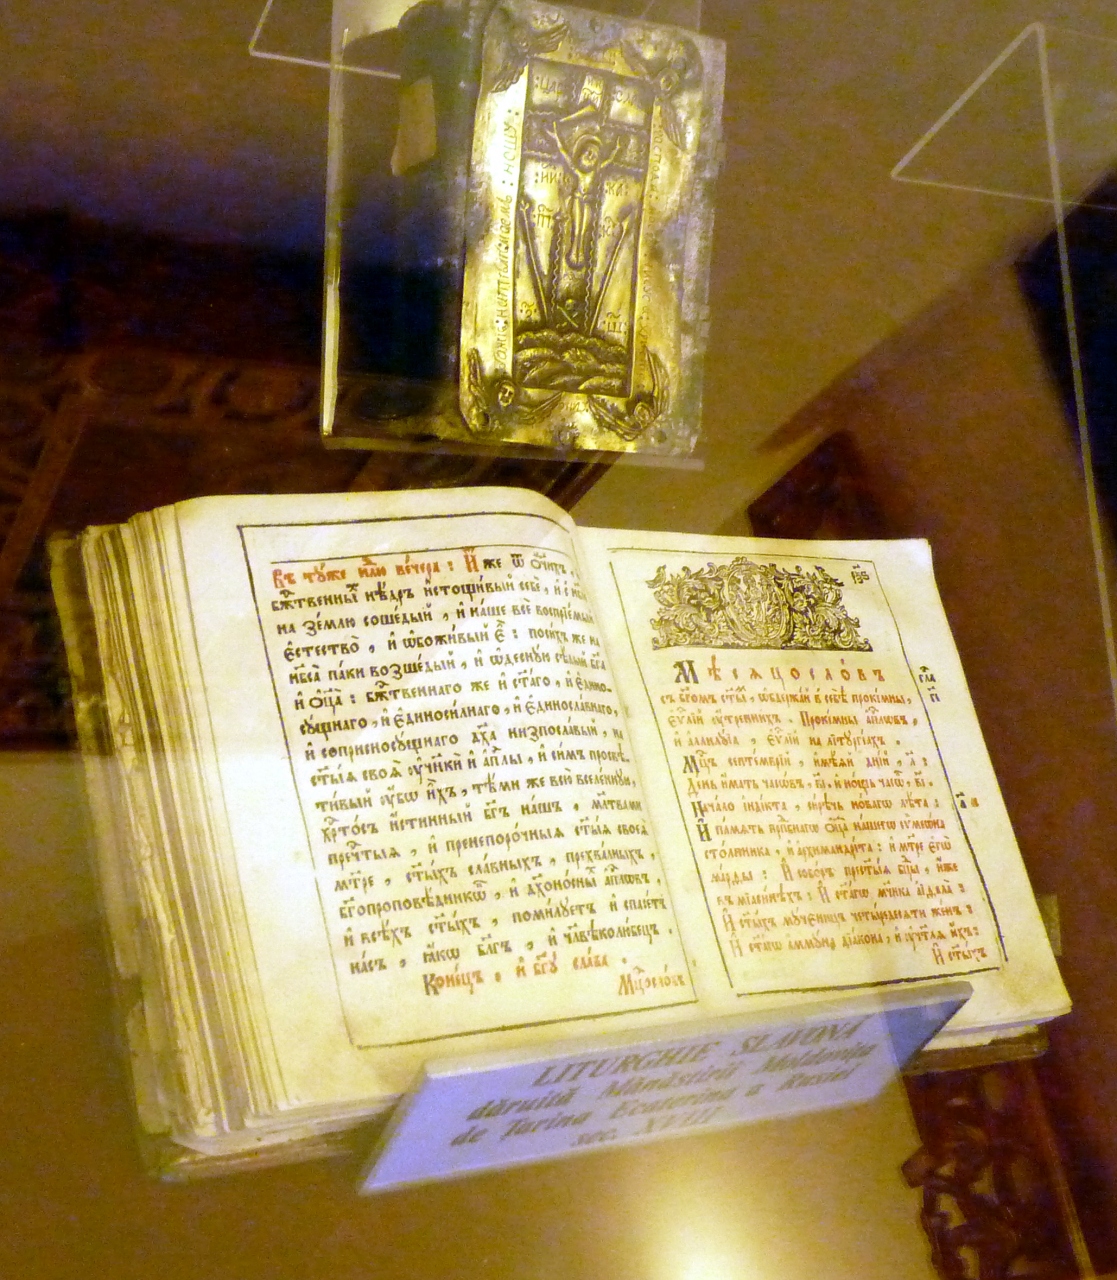 Въ ту́же нлⷣю ве́чера : И҆́же ѿ ѻ҆́ч҃ихъ ,
бж҃твенныⷯ нѣ́дръ и҆стощи́вый себѐ , и҆
на зе́млю соше́дый , и҆ на́ше всѐ воспрїе́мый
є҆стество̀ , и҆ ѡ҆божи́вый є҆̀ : поси́хъ же на
нб҃са̀ па́ки возше́дый , и҆ ѡ҆деснꙋ́ю сѣ́дый бг҃а
и҆ ѻ҆ц҃а̀ : бж҃твеннаго же и҆ ст҃а́го , и҆ є҆дино-
сꙋ́щнаго , и҆ є҆диноси́лнаго , и҆ є҆диносла́внаго ,
и҆ соприсносꙋ́щнаго дх҃а низпосла́вый , на
ст҃ы́ѧ своѧ̀ ᲂу҆чн҃кѝ и҆ а҆пⷭ҇лы , и҆ си́мъ просвѣ-
ти́вый ᲂу҆́бѡ и҆̀хъ , тѣ́ми же всю̀ вселе́ннꙋю ,
хрⷭ҇то́съ и҆́стинный бг҃ъ на́шъ . мл҃твами
пречⷭ҇тыѧ , и҆ пренепоро́чныѧ ст҃ы́ѧ своеѧ̀
мт҃ре , ст҃ы́хъ сла́вныхъ , прехва́лныхъ ,
бг҃опроповѣ́дникѡⷡ , и҆ дх҃оно́сныⷯ а҆пⷭ҇лѡвъ ,
и҆ всѣ́хъ ст҃ы́хъ , поми́лꙋетъ и҆ спасе́тъ
на́съ , ꙗ҆́кѡ бл҃гъ , и҆ чл҃вѣколю́бецъ .
Коне́цъ . и҆ бг҃ꙋ сла́ва .
Мцⷭ҇осло́въ
Мѣсѧцосло́въ
съ бг҃омъ ст҃ы́й , ѡ҆держа́й в себѣ̀ проки́мны ,
є҆ѵⷢ҇лїй ᲂу҆́тренних . Проки́мны а҆пⷭ҇лѡвъ .
и҆ а҆ллилꙋ́їа , є҆ѵⷢ҇лїй на літꙋргі́ѧхъ .
Мцⷭ҇ъ септе́мврїй , и҆мѣ́ѧй дні́й , л҃ :
де́нь и҆́мать часѡ́въ , в҃і . и҆ но́щь часѡ́ⷡ , в҃і .
Нача́ло і҆нди́кта , си́рѣчь но́вагѡ лѣ́та :
И҆ па́мѧть прпⷣбнагѡ ѻ҆ц҃а̀ на́шегѡ сѷмеѡ́на
сто́лпника , и҆ архимандрі́та : и҆ мт҃ре є҆гѡ̀
ма́рѳы : И҆ собо́ръ прест҃ы́ѧ бцⷣы , и҆́же
въ мїасине́ѣхъ : И҆ ст҃а́гѡ мч҃ника а҆їѳа́ла :
И҆ ст҃ы́хъ мꙋ́ченицъ четы́редесѧти же́нъ :
И҆ ст҃а́гѡ аммꙋ́на дїа́кона , и҆ ᲂу҆чт҃лѧ и҆́хъ :
И҆ ст҃ы́хъ
LITURGHIE SLAVONĂ
dăruită Mănăstirii Moldovița
de Țarina Ecaterina a Rusiei
sec. XVIII